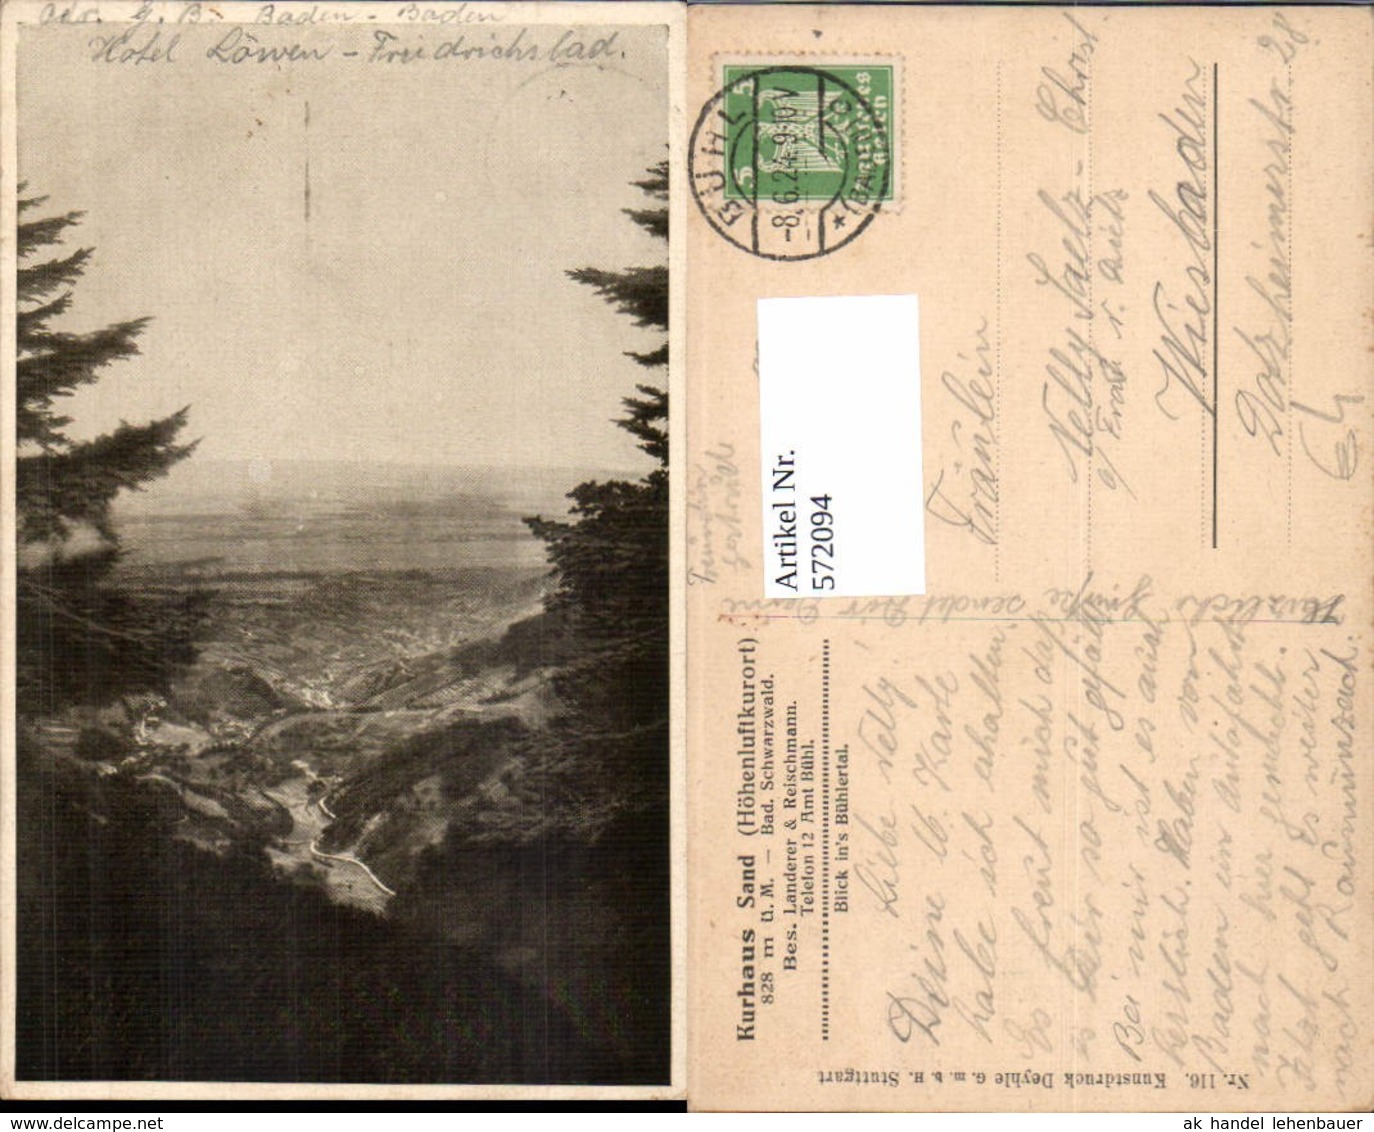 Adr. G. B. Baden-Baden
Hotel Löwen - Friedrichsbad.
BÜHL
-8.6.24.9-10 V
(BADEN)
Deutsches
Reich
5
5
Artikel Nr.
572094
Fräulein
Nelly Saelz - Christ
Wiesbaden
Dotzheimerstr. 28
Kurhaus Sand (Höhenluftkurort)
828 m ü. M. — Bad. Schwarzwald.
Bes. Landerer & Reischmann.
Telefon 12 Amt Bühl.
Blick in's Bühlertal.
Liebe Nelly!
Deine lb. Karte
habe ich erhalten.
Es freut mich daß
es Dir so gut gefällt
Bei mir ist es auch
herrlich. Haben von
Baden
nach hier gemacht.
Jetzt geht es weiter
nach Raumünzach.
Herzliche Grüße sendet Dir Deine
Freundin
Nr. 116. Kunstdruck Deyhle G. m. b. H. Stuttgart
ak handel lehenbauer